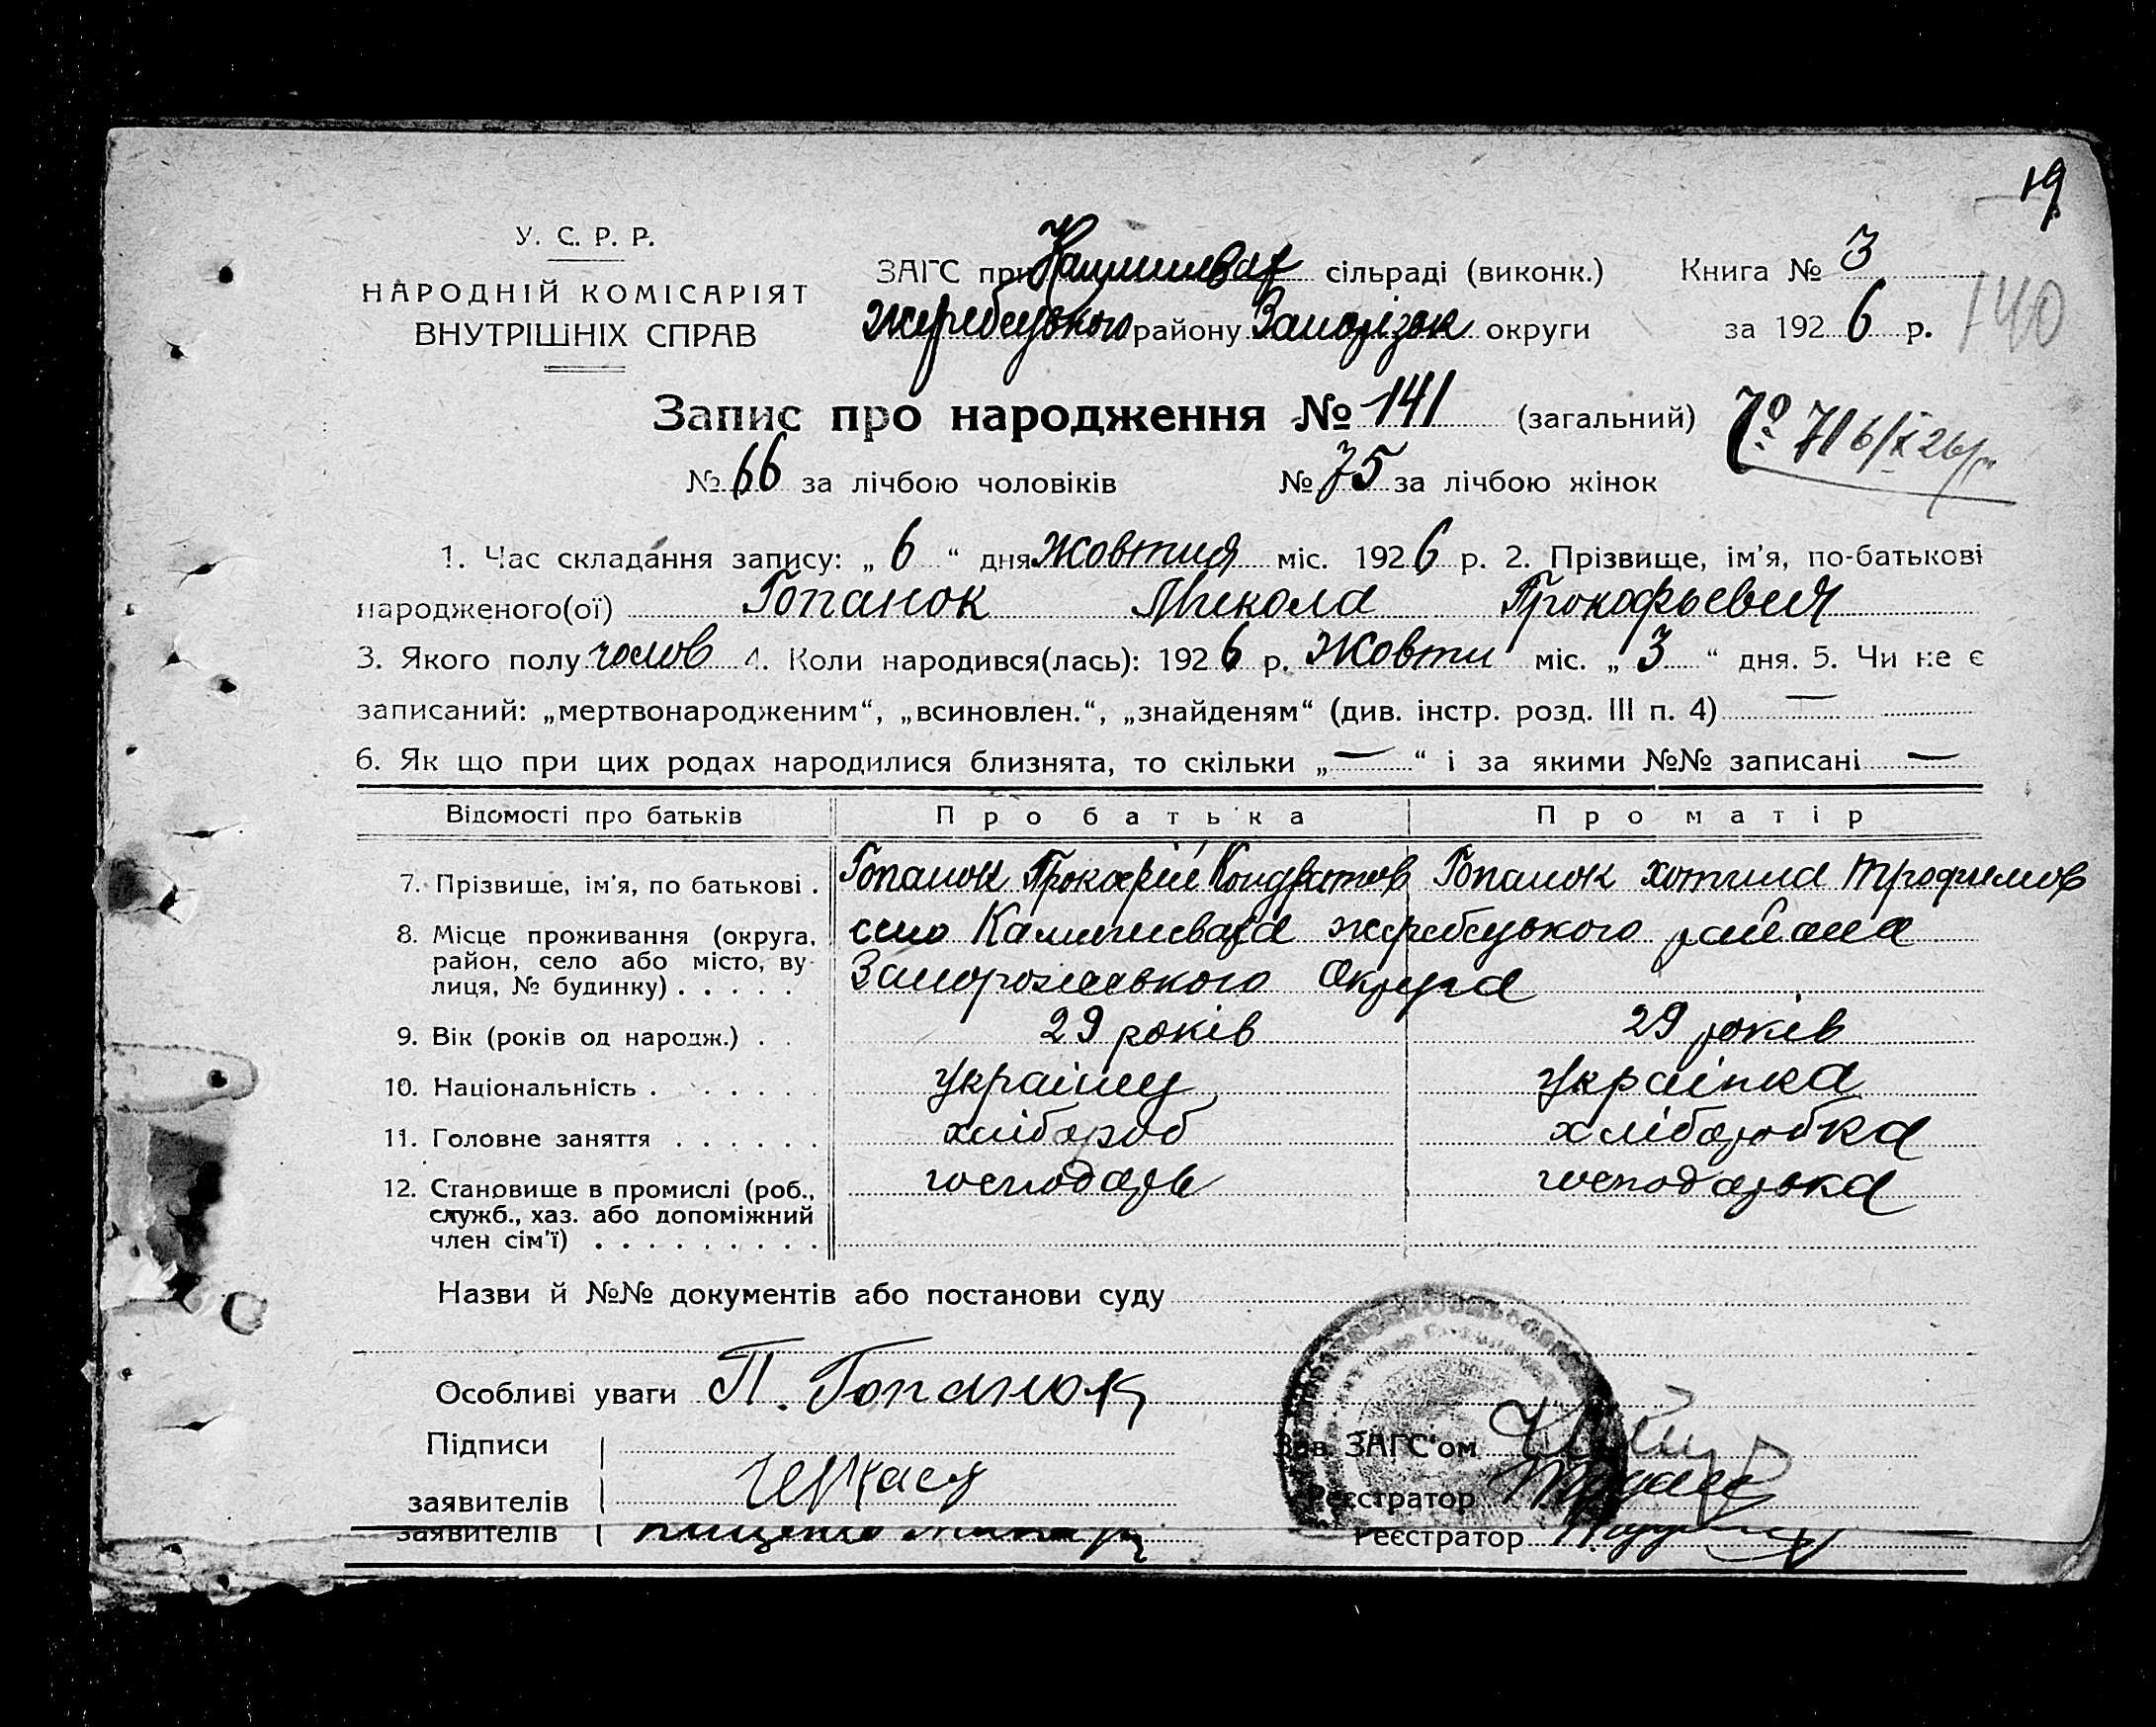 19
У. С. Р. Р.
НАРОДНІЙ КОМІСАРІЯТ
ВНУТРІШНІХ СПРАВ
ЗАГС при сільраді (виконк.)
Книга № 3
Жеребецького району Запорізьк округи
за 1926 р.
140
Запис про народження № 141 (загальний)
716/X 26 р.
№ 66 за лічбою чоловіків № 75 за лічбою жінок
1. Час складання запису: „ 6 “ дня жовтня міс. 1926 р. 2. Прізвище, ім’я, по-батькові
народженого(ої) Гопанок Микола Прокофьевич
3. Якого полу чолов 4. Коли народився(лась): 1926 р. Жовтн міс. „ 3 “ дня. 5. Чи не є
записаний: „мертвонародженим“, „всиновлен.“, „знайденям“ (див. інстр. розд. III п. 4) —
6. Як що при цих родах народилися близнята, то скільки „ — “ і за якими №№ записані —
Відомості про батьків Про батька Про матір
7. Прізвище, ім’я, по батькові . Гопанок Прокофій Кондратов Гопанок Хотина Трофимов
8. Місце проживання (округа, район, село або місто, вулиця, № будинку) . . . . . село жеребецького района
Запорожського Округа
9. Вік (років од народж.) . . 29 років 29 років
10. Національність . . . . . . . українец українка
11. Головне заняття . . . . . . хлібороб хліборобка
12. Становище в промислі (роб., господарь господарька
служб., хаз. або допоміжний
член сім’ї) . . . . . . . . .
Назви й №№ документів або постанови суду
Особливі уваги П. Гопанюк
Підписи
Зав. ЗАГС‘ом
заявителів
Реєстратор
заявителів
Реєстратор